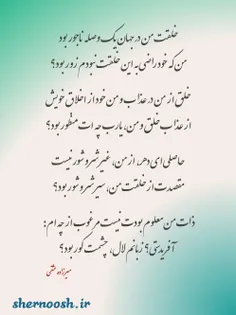 خلقت من در جهان یک وصله ناجور بود
من که خود راضی به این خلقت نبودم زور بود؟
خلق از من در عذاب و من خود از اخلاق خویش
از عذاب خلق و من، یارب چه ات منظور بود؟
حاصلی ای دهر، از من، غیر شر و شور نیست
مقصدت از خلقت من، سیر شر و شور بود؟
ذات من معلوم بودت نیست مرغوب از چه ام:
آفریدستی؟ زبانم لال، چشمت کور بود؟
میرزاده عشقی
shernoosh.ir